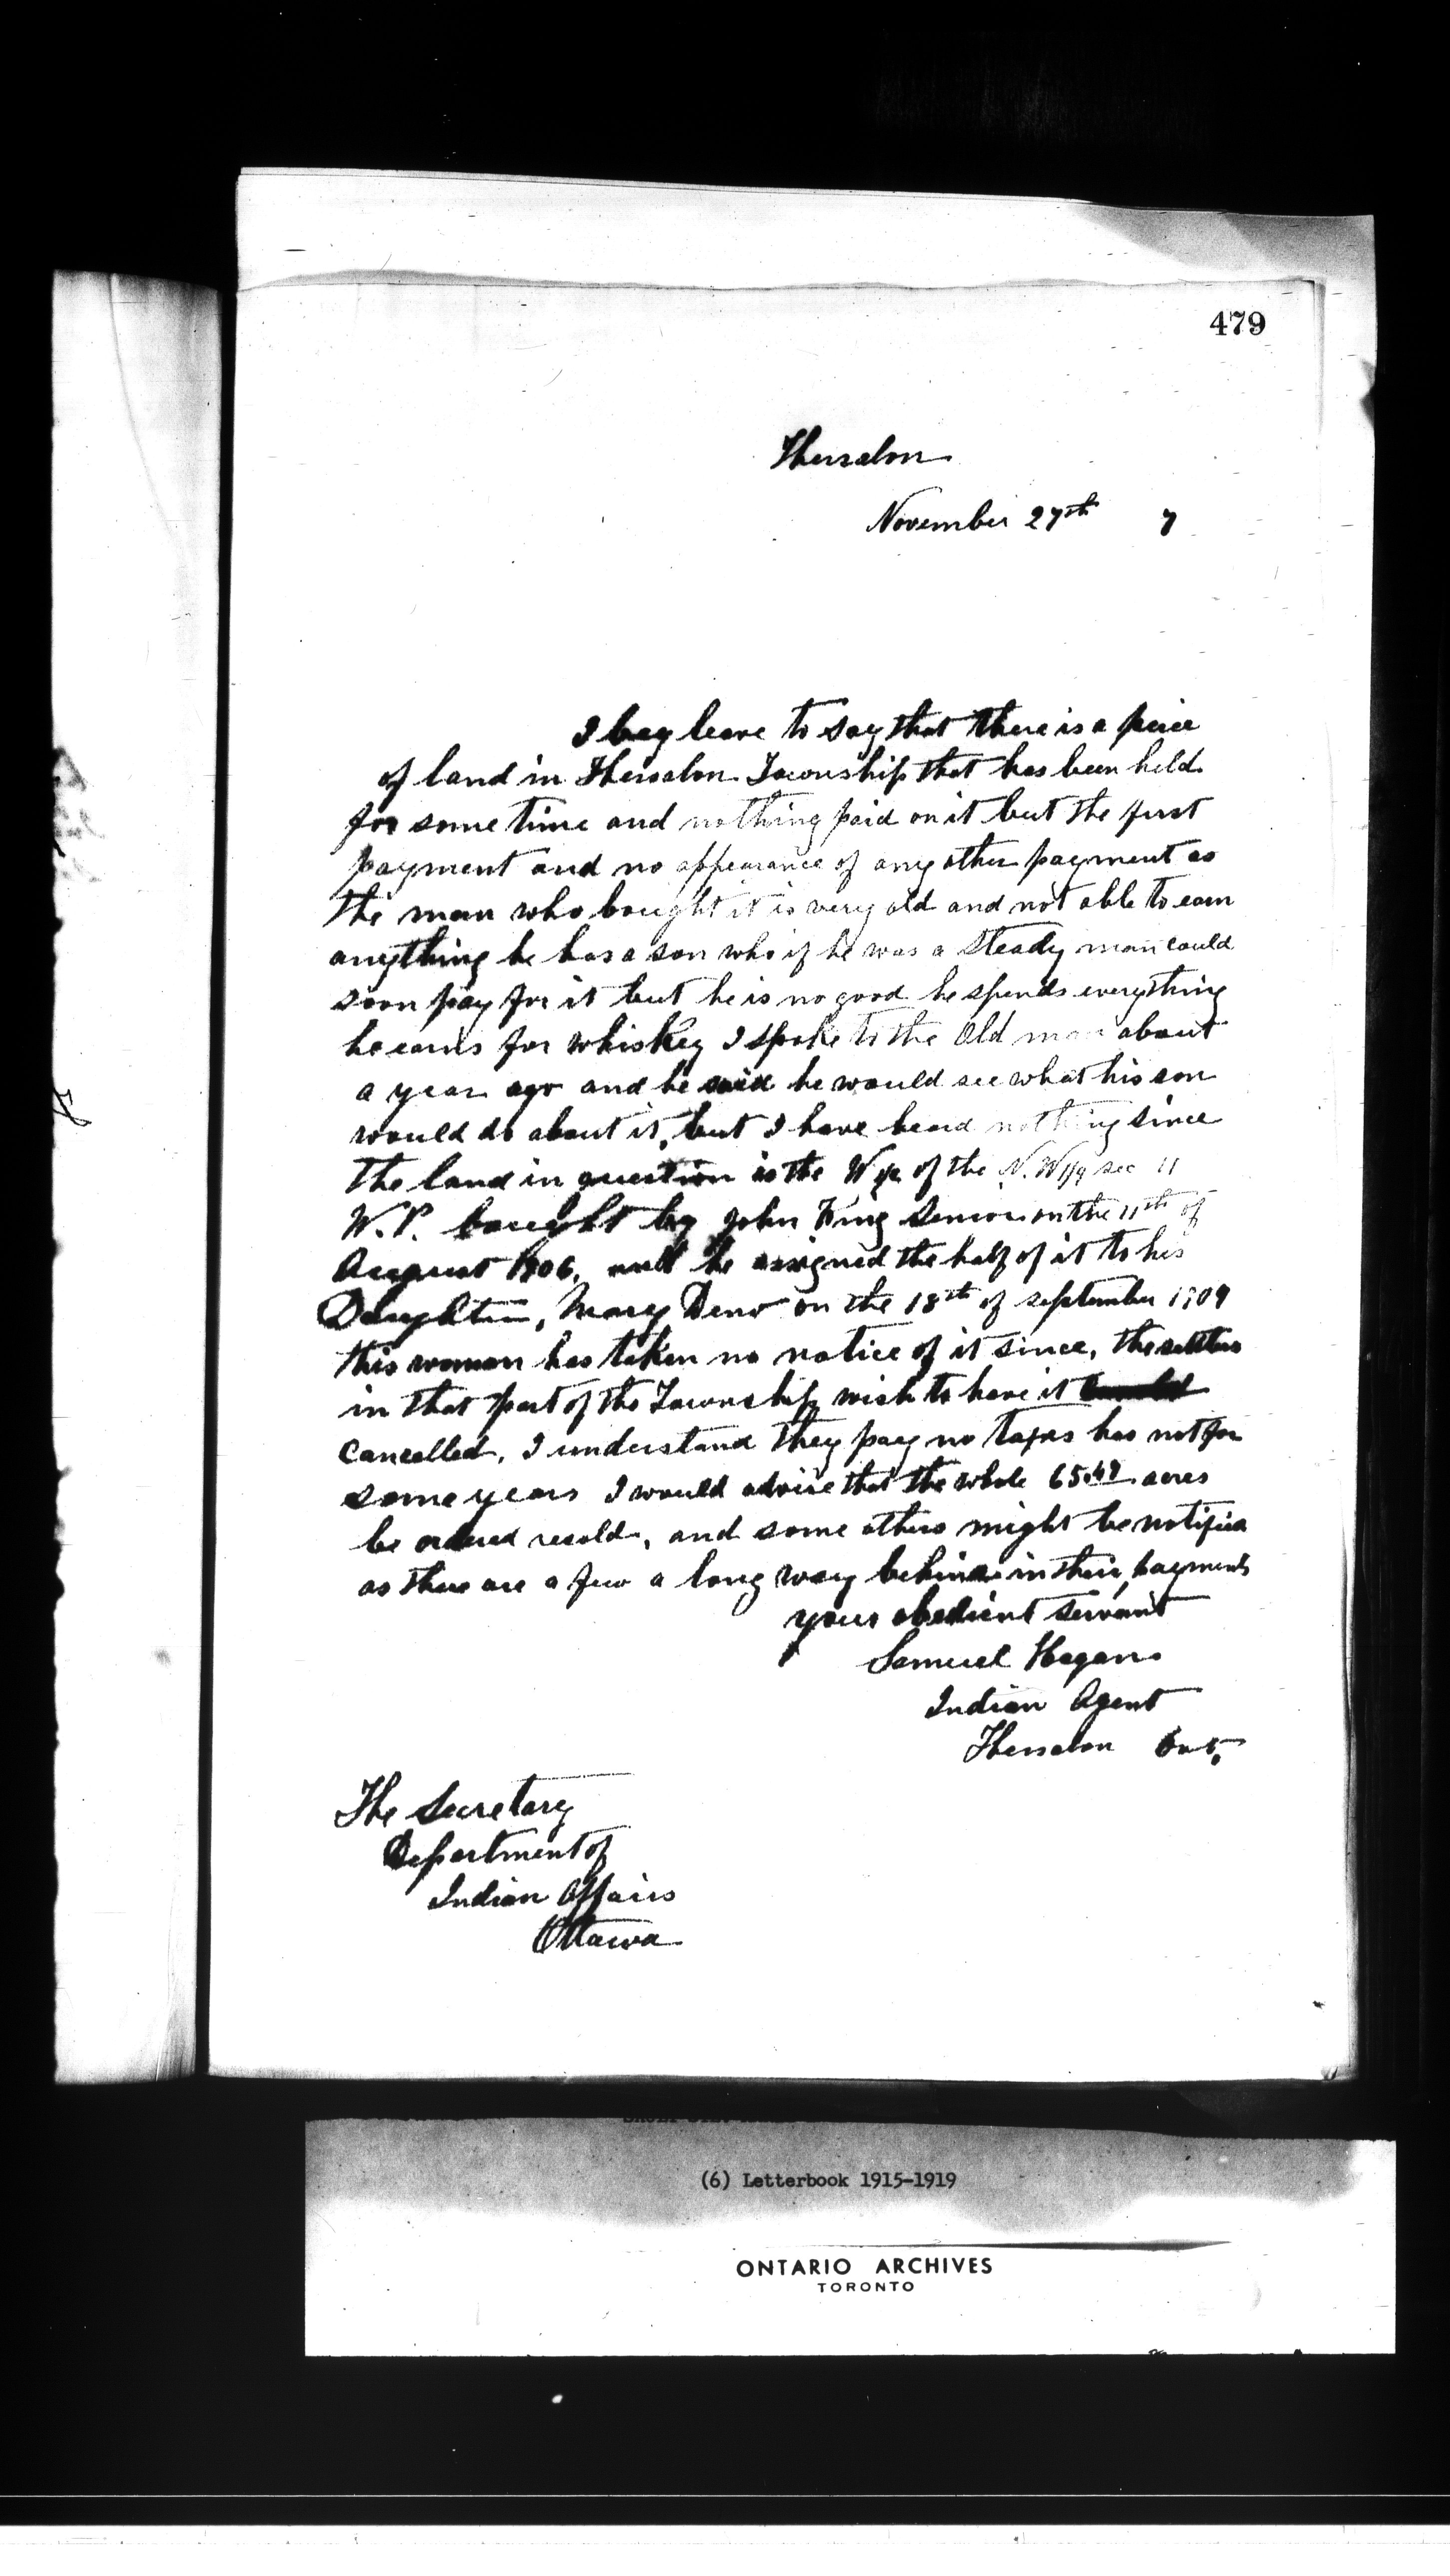 479
Thessalon
November 27th 7
I beg leave to say that there is a peice
of land in Thessalon Township that has been held
for some time and nothing paid on it but the first
payment and no appearance of any other payment as
the man who bought it is very old and not able to earn
anything he has a son who if he was a steady man could
soon pay for it but he is no good he spends everything
he earns for whiskey I spoke to the Old man about
a year ago and he said he would see what his son
would do about it, but I have heard nothing since
the land in question is the W 1/2 of the N.W 1/4 sec 11
W.P. bought by John King Senior on the 11th of
August 1906, and he assigned the half of it to his
Daughter, Mary Deno on the 18th of september 1909
this woman has taken no notice of it since, the settlers
in that part of the Township wish to have it
cancelled. I understand they pay no taxes has not for
some years I would advise that the whole 65.49 acres
be ordered resold, and some others might be notified
as there are a few a long way behind in their payments
your obedient servant
Samuel Hagan
Indian Agent
Thessalon Ont.
The Secretary
Department of
Indian Affairs
Ottawa
(6) Letterbook 1915-1919
ONTARIO ARCHIVES
TORONTO